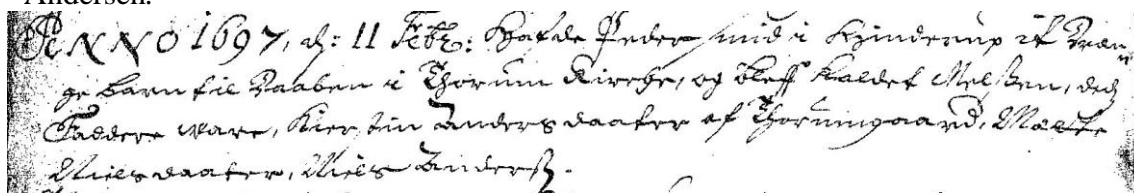 Andersen.
ANNO 1697, d: 11 Febr: Hafde Peder smid i Hinderup it Dren
ge barn til Daaben i Thorum Kirche, og bleff kaldet Melchen, desz
Faddere ware, Kierstin Anders daater af Thorumgaard, Malte
Nielsdaater, Niels Andersz.